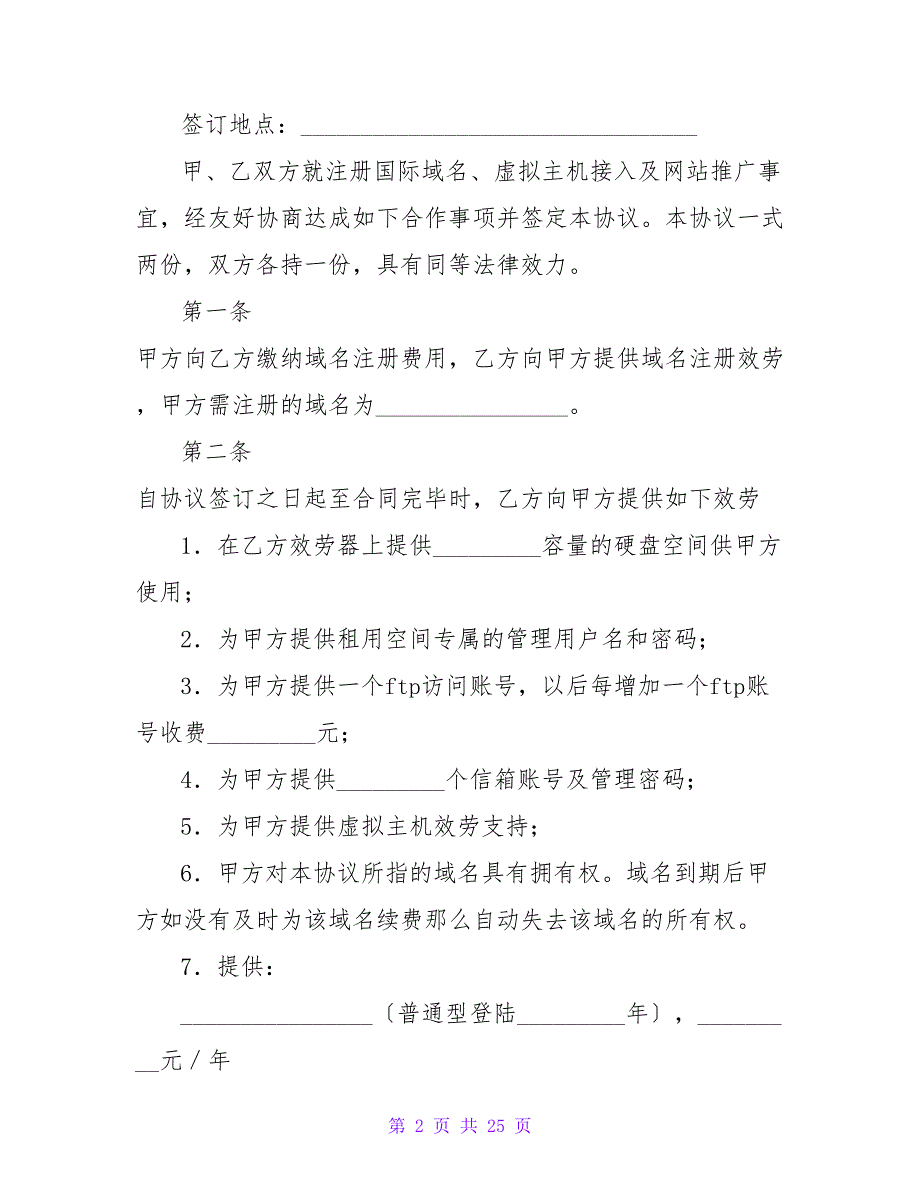 签订地点：_________________________________
甲、乙双方就注册国际域名、虚拟主机接入及网站推广事
宜，经友好协商达成如下合作事项并签定本协议。本协议一式
两份，双方各持一份，具有同等法律效力。
第一条
甲方向乙方缴纳域名注册费用，乙方向甲方提供域名注册效劳
，甲方需注册的域名为________________。
第二条
自协议签订之日起至合同完毕时，乙方向甲方提供如下效劳
1．在乙方效劳器上提供_________容量的硬盘空间供甲方
使用；
2．为甲方提供租用空间专属的管理用户名和密码；
3．为甲方提供一个ftp访问账号，以后每增加一个ftp账
号收费_________元；
4．为甲方提供_________个信箱账号及管理密码；
5．为甲方提供虚拟主机效劳支持；
6．甲方对本协议所指的域名具有拥有权。域名到期后甲
方如没有及时为该域名续费那么自动失去该域名的所有权。
7．提供：
________________〔普通型登陆_________年〕，_______
__元／年
第 2 页 共 25 页